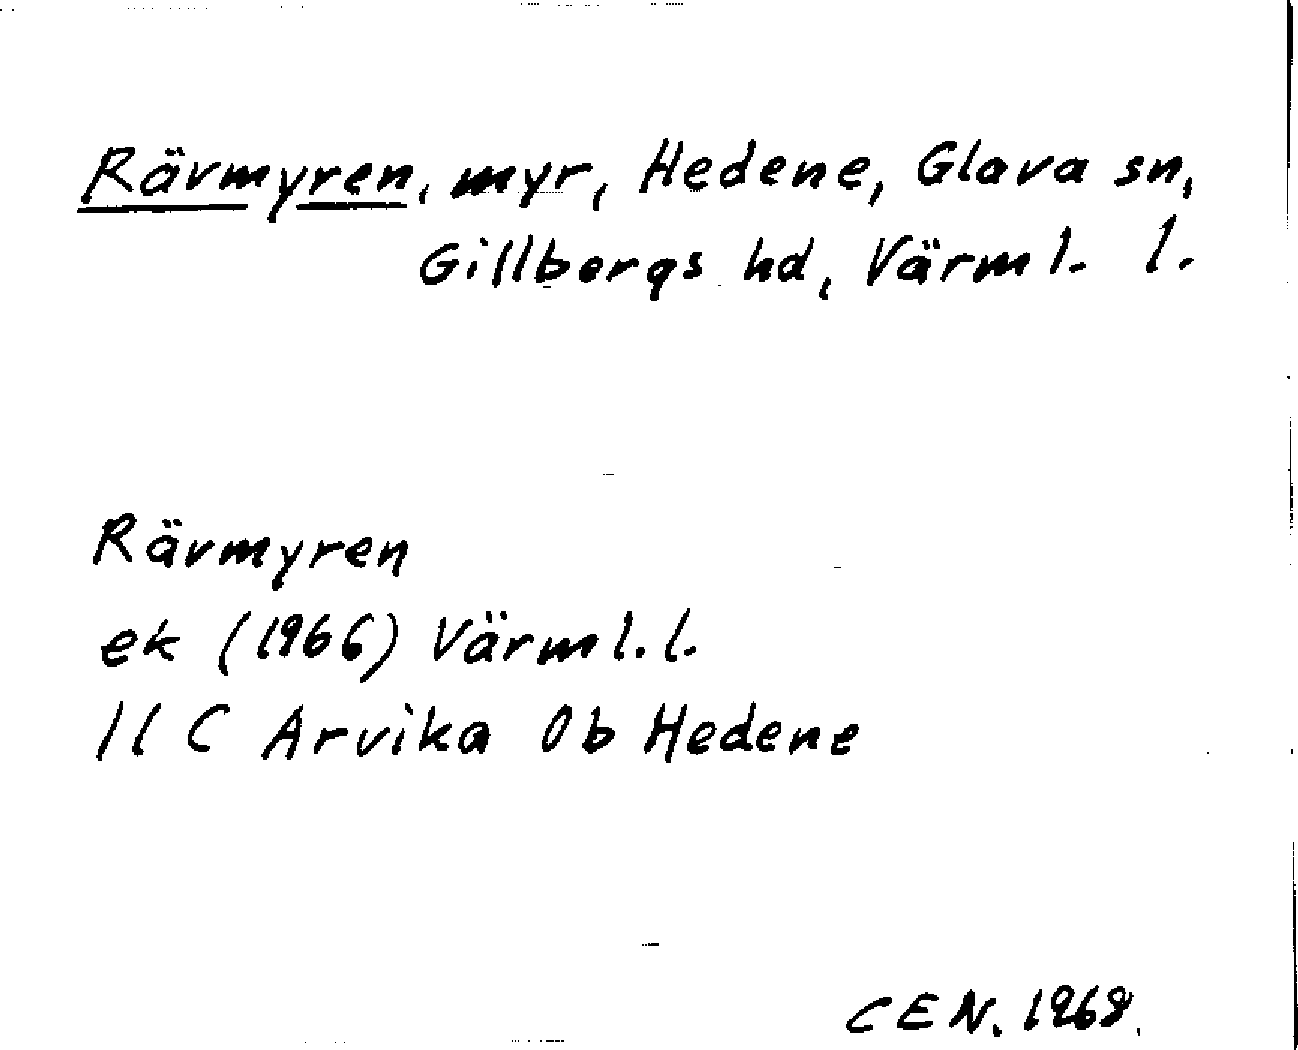 Rävmyren, myr, Hedene, Glava sn,
Gillbergs hd, Värml. l.
Rävmyren
ek (1966) Värml. l.
11 C Arvika 0b Hedene
CEN. 1968.